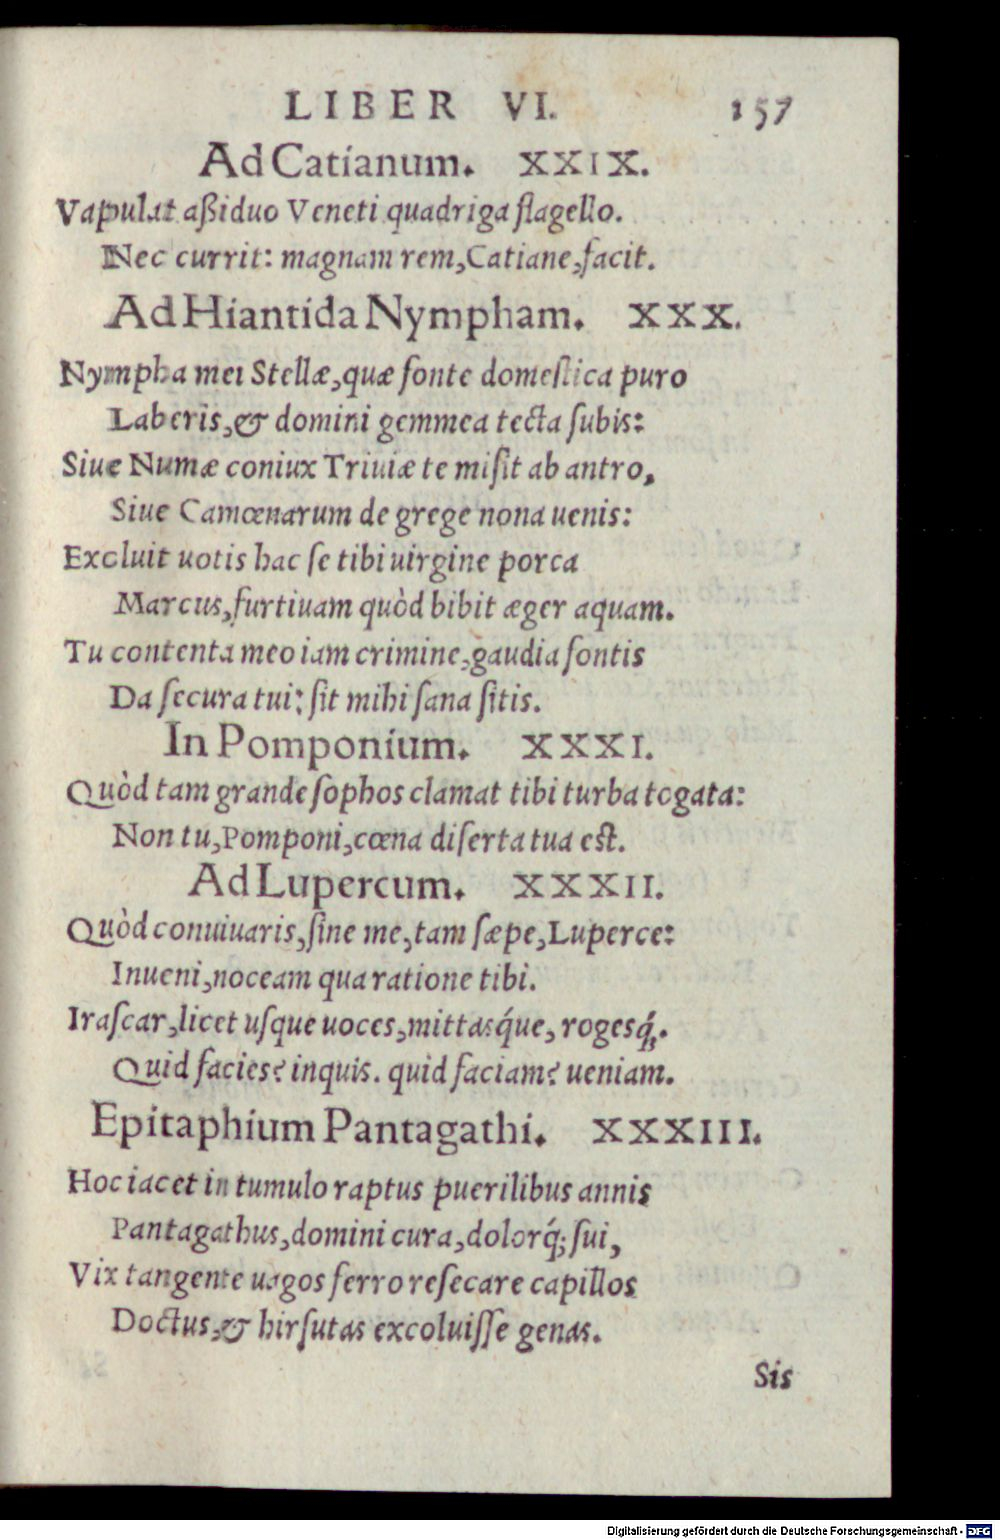 LIBER VI. 157
Ad Catianum. XXIX.
Vapulat aßiduo Veneti quadriga flagello.
Nec currit: magnam rem, Catiane, facit.
Ad Hiantida Nympham. XXX.
Nympha mei Stellæ, quæ fonte domestica puro
Laberis, & domini gemmea tecta subis:
Siue Numæ coniux Triuiæ te misit ab antro,
Siue Camœnarum de grege nona uenis:
Excluit uotis hac se tibi uirgine porca
Marcus, furtiuam quòd bibit æger aquam.
Tu contenta meo iam crimine, gaudia fontis
Da secura tui: sit mihi sana sitis.
In Pomponium. XXXI.
Quòd tam grande sophos clamat tibi turba togata:
Non tu, Pomponi, cœna diserta tua est.
Ad Lupercum. XXXII.
Quòd conuiuaris, sine me, tam sæpe, Luperce:
Inueni, noceam qua ratione tibi.
Irascar, licet usque uoces, mittasq́ue, rogesq́;.
Quid facies? inquis. quid faciam? ueniam.
Epitaphium Pantagathi. XXXIII.
Hoc iacet in tumulo raptus puerilibus annis
Pantagathus, domini cura, dolorq́; sui,
Vix tangente uagos ferro resecare capillos
Doctus, & hirsutas excoluisse genas.
Sis
Digitalisierung gefördert durch die Deutsche Forschungsgemeinschaft - DFG